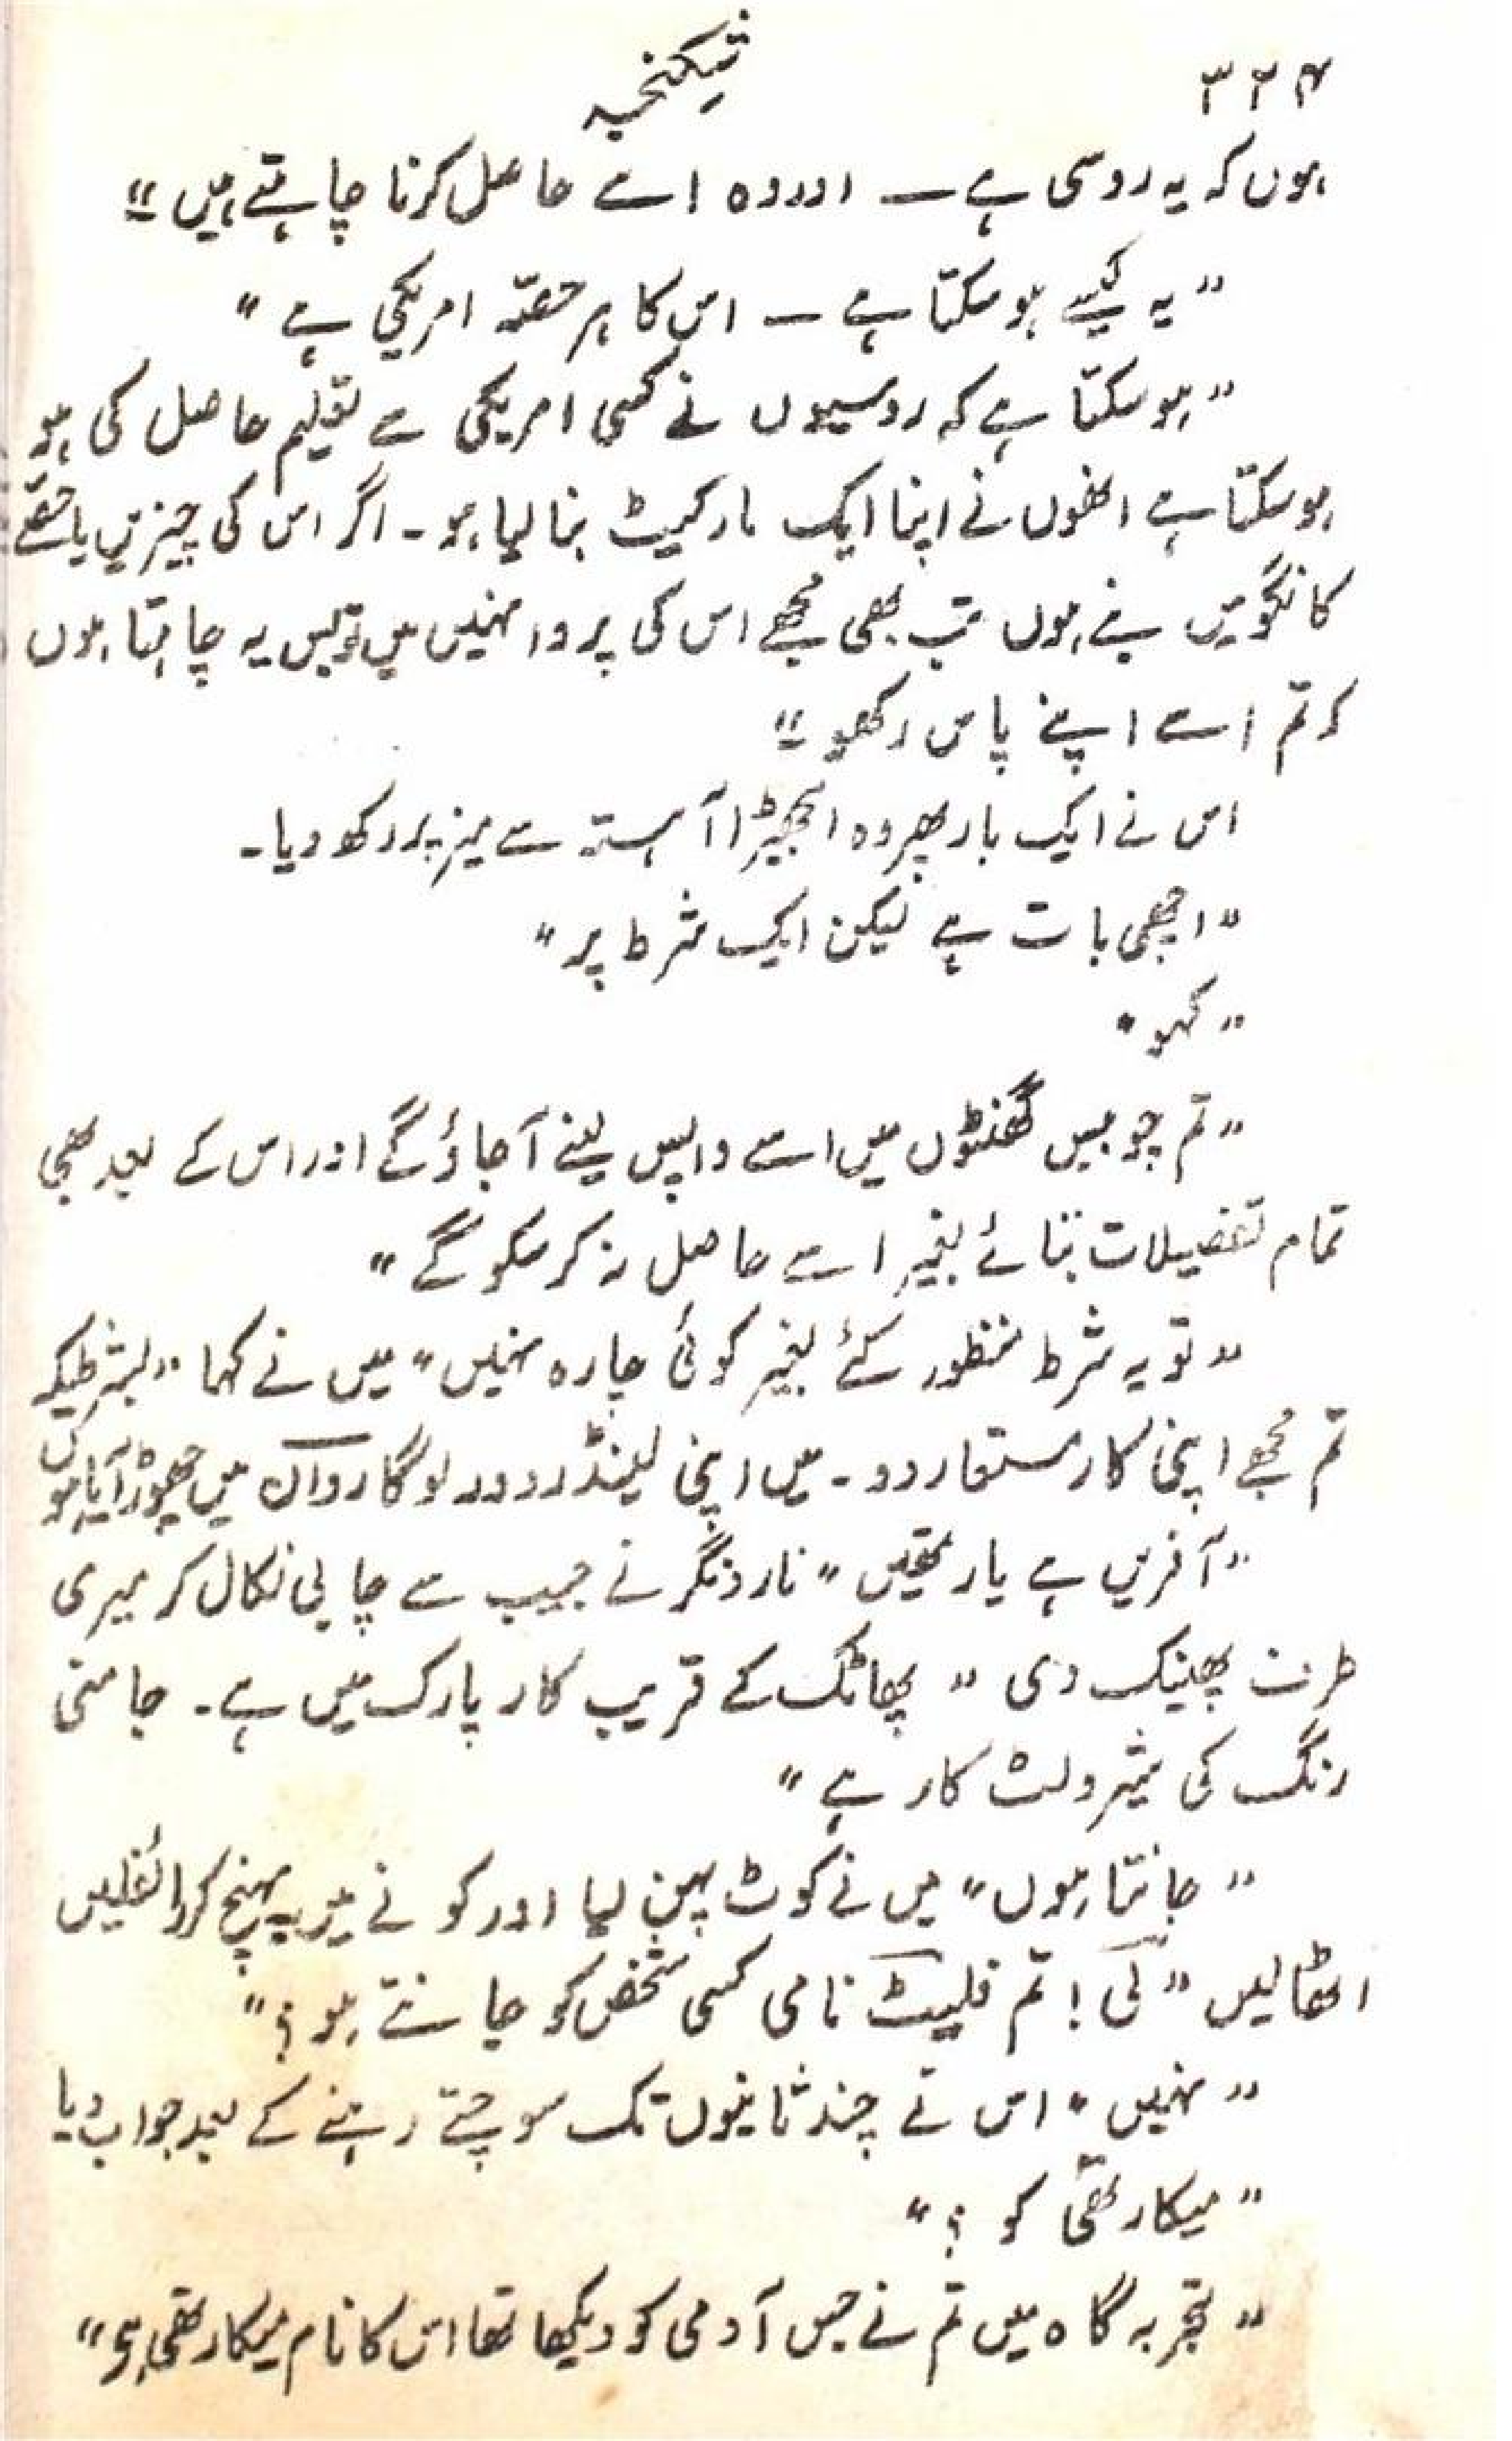 ۳۲۴
شکنجہ
ہوں کہ یہ روسی ہے — اور وہ اسے حاصل کرنا چاہتے ہیں"
"یہ کیسے ہوسکتا ہے — اس کا ہر حصّہ امریکی ہے"
"ہوسکتا ہے کہ روسیوں نے کسی امریکی سے تعلیم حاصل کی ہو
ہوسکتا ہے انھوں نے اپنا ایک مارکیٹ بنا لیا ہو۔ اگر اس کی چیزیں یا حصّے
کانگو میں بنے ہوں تب بھی مجھے اس کی پروا نہیں میں تو بس یہ چاہتا ہوں
کہ تم اسے اپنے پاس رکھو"
اس نے ایک بار پھر وہ بکھیڑا آہستہ سے میز پر رکھ دیا۔
"اچھی بات ہے لیکن ایک شرط پر"
"کہو"
"تم چوبیس گھنٹوں میں اسے واپس لینے آجاؤ گے اور اس کے بعد بھی
تمام تفصیلات بتائے بغیر اسے حاصل نہ کرسکو گے"
"تو یہ شرط منظور کئے بغیر کوئی چارہ نہیں" میں نے کہا "بشرطیکہ
تم مجھے اپنی کار مستعار دو۔ میں اپنی لینڈ روور لوگارواک میں چھوڑ آیا ہوں
"آفریں ہے یار تمھیں" نارڈنگر نے جیب سے چابی نکال کر میری
طرف پھینک دی "پھاٹک کے قریب کار پارک میں ہے۔ جامنی
رنگ کی شیرولٹ کار ہے"
"جانتا ہوں" میں نے کوٹ پہن لیا اور کونے میں پہنچ کر رائفلیں
اٹھالیں "لی! تم فلیٹ نامی کسی شخص کو جانتے ہو؟"
"نہیں" اس نے چند ثانیوں تک سوچتے رہنے کے بعد جواب دیا
"میکارتھی کو؟"
"تجربہ گاہ میں تم نے جس آدمی کو دیکھا تھا اس کا نام میکارتھی ہے"